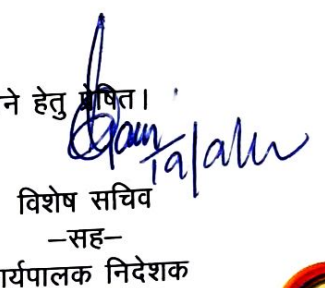 ने हेतु प्रेषित।
विशेष सचिव
–सह–
र्यपालक निदेशक